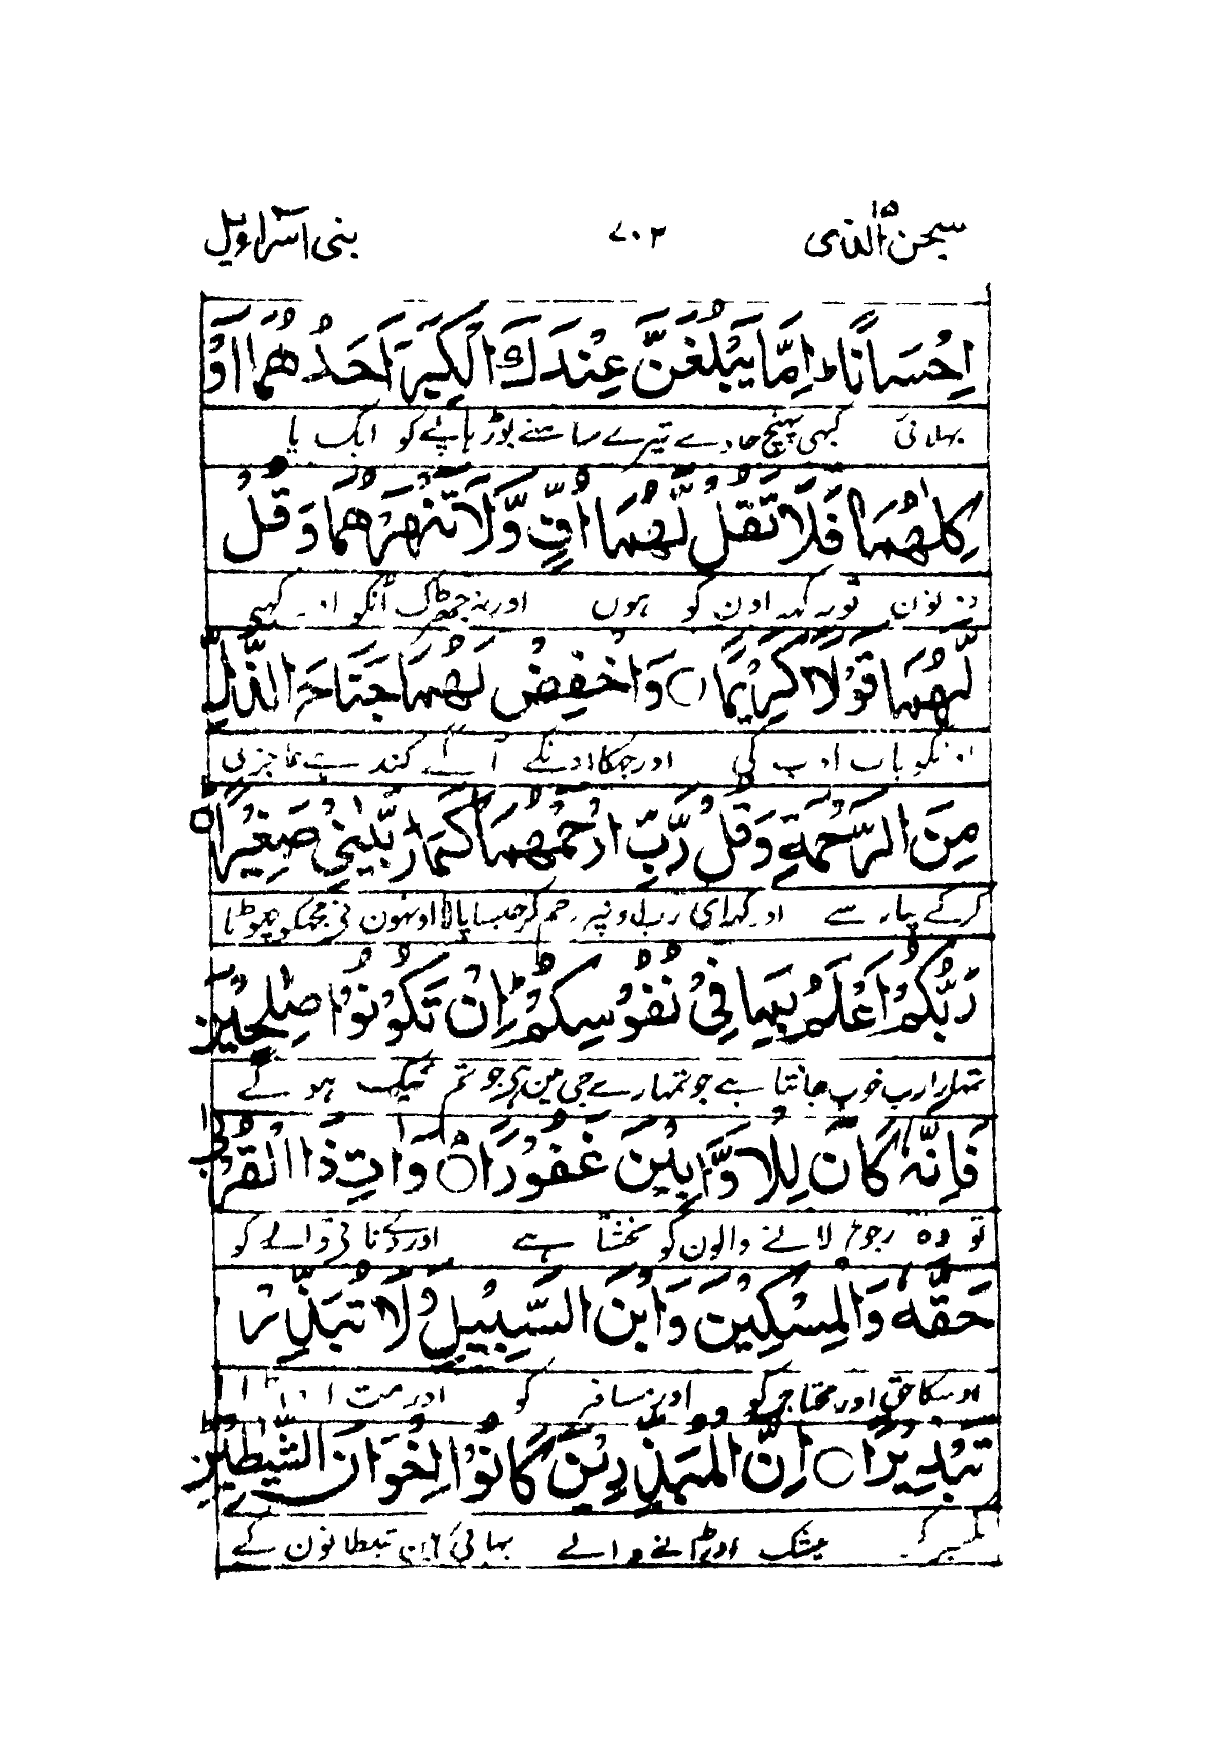 سبحن الذی ۱۵ ۷۰۲ بنی اسراءیل
اِحْسَانًا ؕ اِمَّا یَبْلُغَنَّ عِنْدَكَ الْكِبَرَ اَحَدُهُمَا اَوْ
بہلائی کبہی پہنچ جاوے تیرے سامنے بوڑہاپے کو ایک یا
كِلٰهُمَا فَلَا تَقُلْ لَّهُمَا اُفٍّ وَّلَا تَنْهَرْهُمَا وَقُلْ
دونون تو نہ کہہ اون کو ہوں اور نہ جھڑک انکو اور کہہ
لَّهُمَا قَوْلًا كَرِیْمًا ○ وَاخْفِضْ لَهُمَا جَنَاحَ الذُّلِّ
اونکو بات ادب کی اور جہکا اونکے آگے کندہے عاجزی
مِنَ الرَّحْمَةِ وَقُلْ رَّبِّ ارْحَمْهُمَا كَمَا رَبَّیٰنِیْ صَغِیْرًا ○
کرکے پیار سے اور کہہ ای رب اونپر رحم کر جیسا پالا اونہون نی مجھکو چھوٹا
رَبُّكُمْ اَعْلَمُ بِمَا فِیْ نُفُوْسِكُمْ ؕ اِنْ تَكُوْنُوْا صٰلِحِیْنَ
تمہارا رب خوب جانتا ہے جو تمہارے جی مین ہے جو تم نیک ہوگے
فَاِنَّهٗ كَانَ لِلْاَوَّابِیْنَ غَفُوْرًا ○ وَاٰتِ ذَا الْقُرْبٰی
تو وہ رجوع لانے والون کو بخشتا ہے اور دے ناتی والے کو
حَقَّهٗ وَالْمِسْكِیْنَ وَابْنَ السَّبِیْلِ وَلَا تُبَذِّرْ
اوسکا حق اور محتاج کو اور مسافر کو اور مت
تَبْذِیْرًا ○ اِنَّ الْمُبَذِّرِیْنَ كَانُوْا اِخْوَانَ الشَّیٰطِیْنِ
بکھیر کر بیشک اوڑانے والے بہائی ہین شیطانون کے